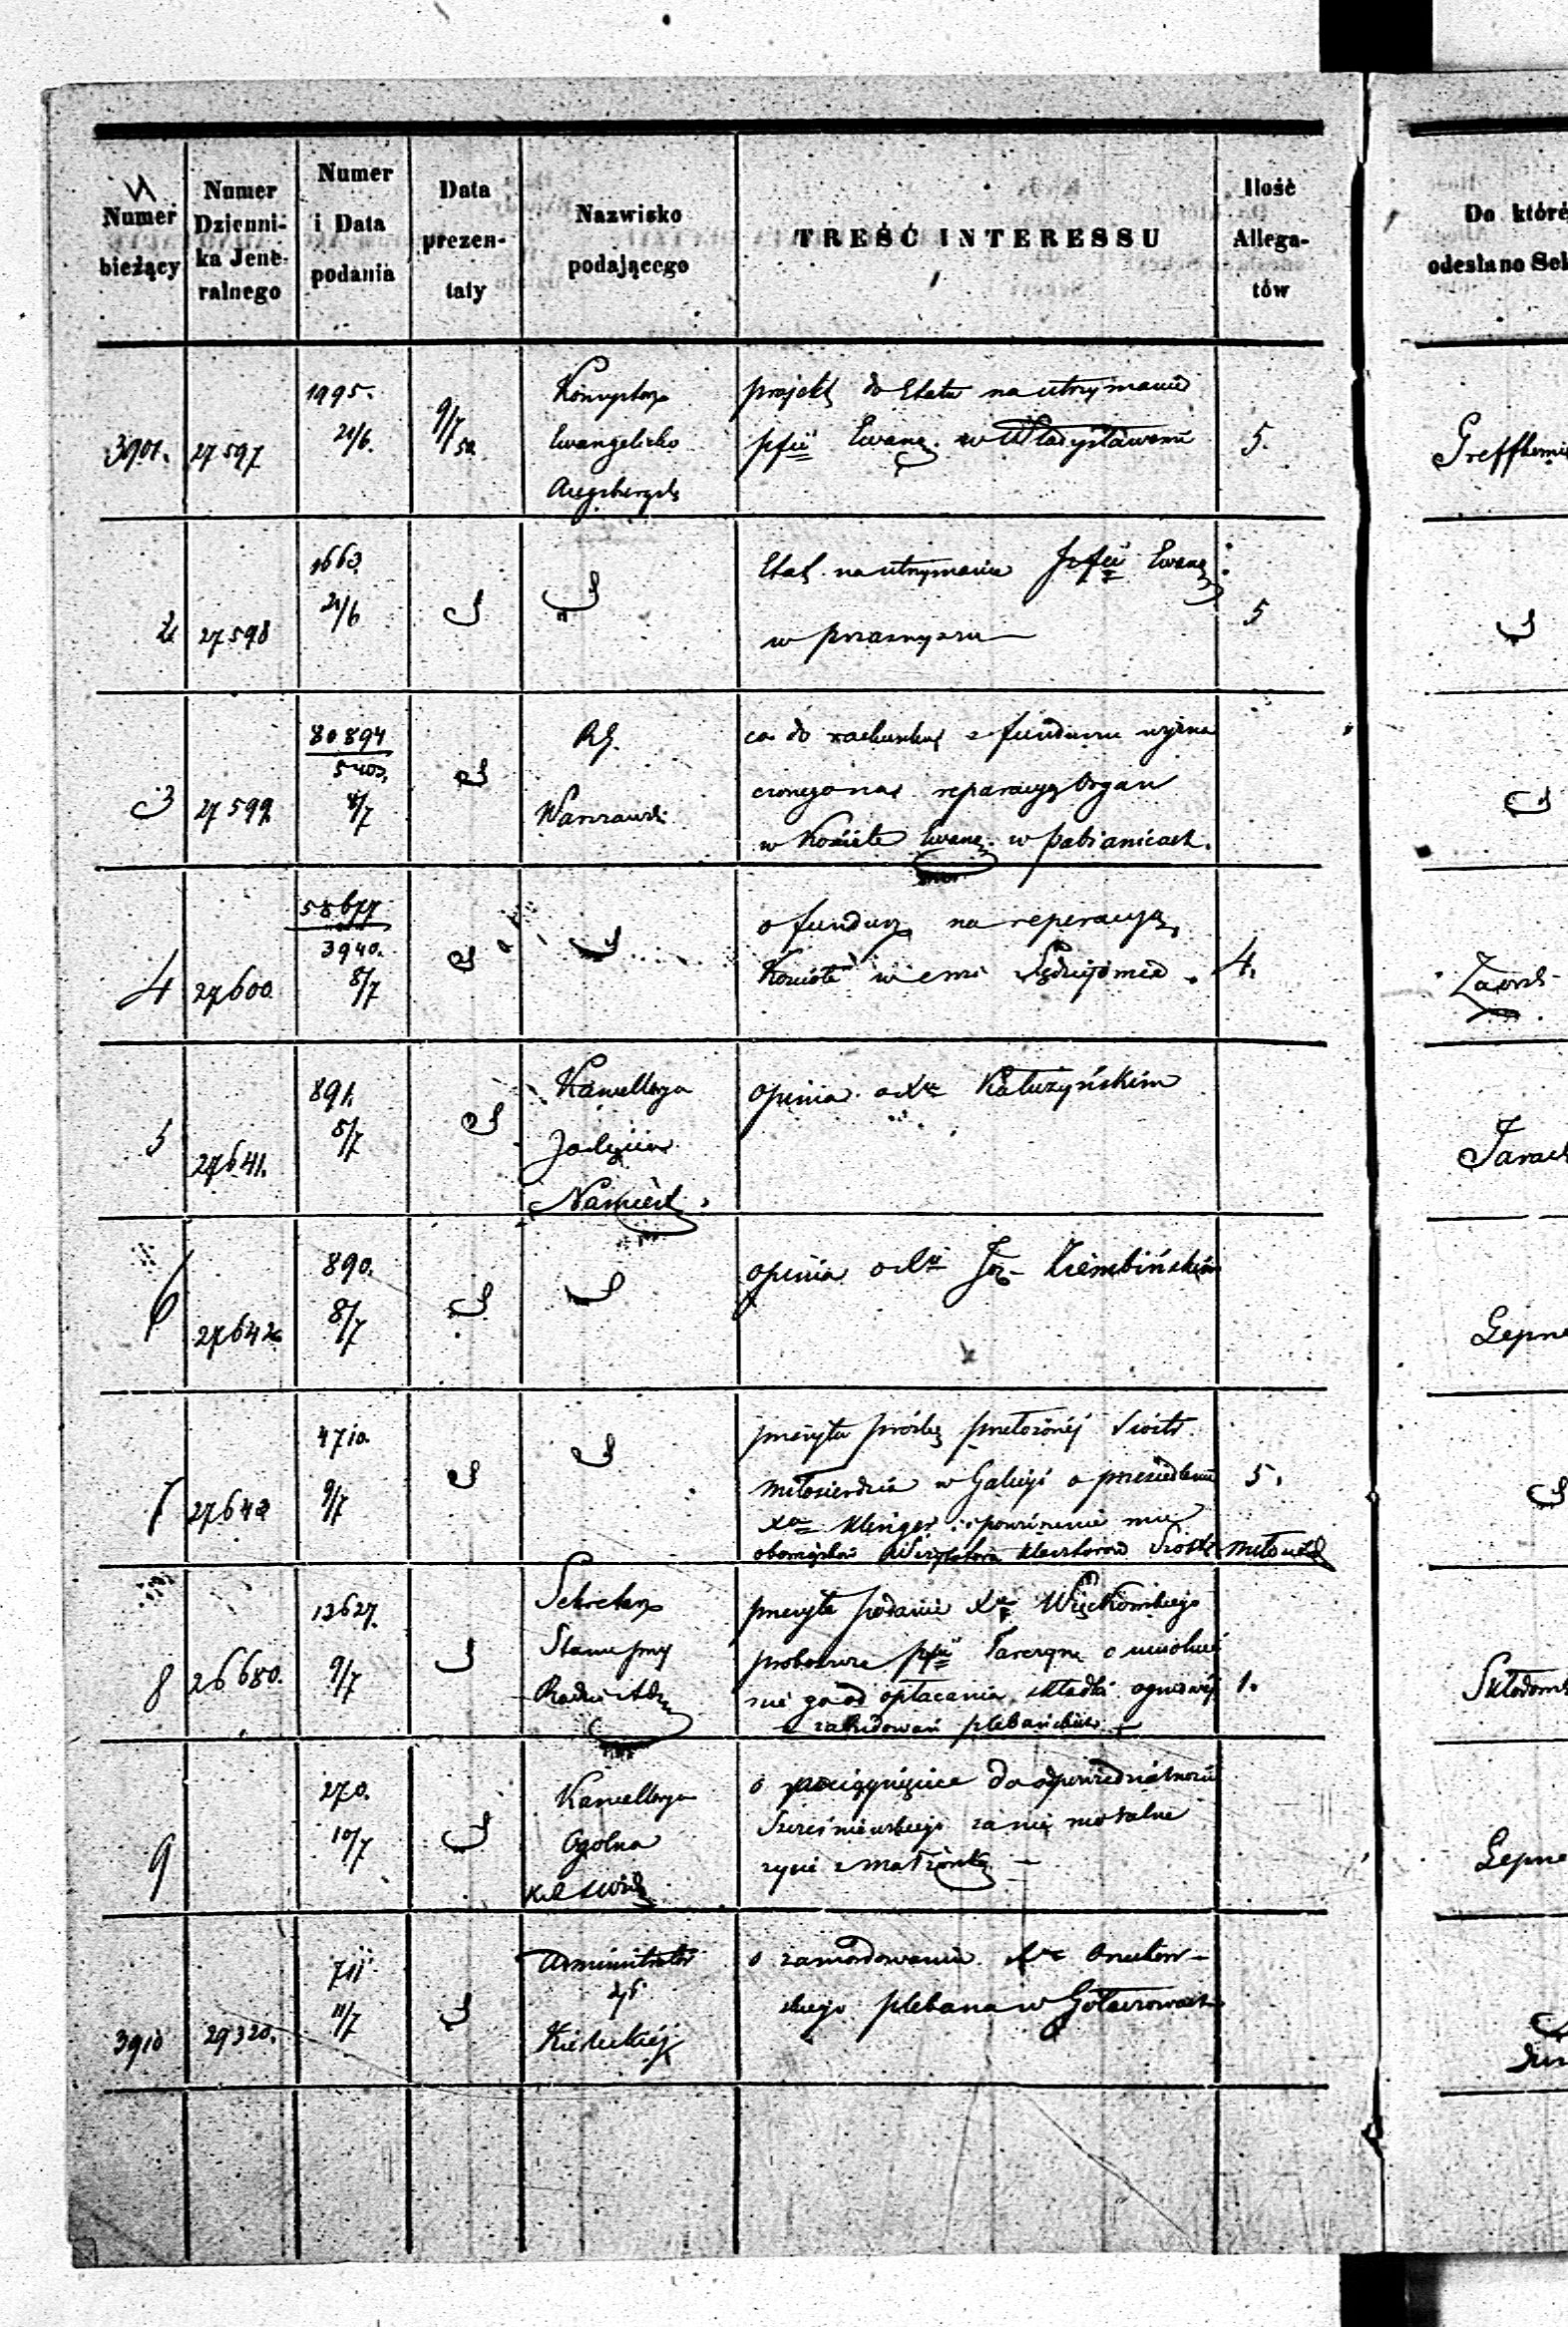 Numer bieżący
Numer Dzienni-ka Jene-ralnego
Numer i Data podania
Data prezen-taty
Nazwisko podającego
TREŚĆ INTERESSU
Ilość Allega-tów
Do któré
odesłano Sek
3901. 27597 1995. 21/6. 9/7 52
Konsystorz
Ewangelicko
Augsburgski
projekt do Etatu na utrzymanie
pfii Ewang. w Władysławowie
5.
2 27598 1663. 21/6
Etat na utrzymanie pfii Ewang
w Przasnyszu
5
3 27599 80894 5403. 8/7
RG.
Warszawski
co do rachunku z funduszu wyzna
czonego na reparacyą Organ
w Kościele Ewang. w Pabianicach.
4 27600 58677 3940. 8/7
o fundusz na reperacyą
Kościoła we wsi
4.
5 27641. 891. 8/7
Kancellarya
Namiest.
opinia o Xu Kałużyńskim
6 27642 890. 8/7
opinia o Xu Józ. Ziembińskim
Lepne
7 27643 4710. 9/7
przesyła prośbę przełożonéj Sióstr
miłosierdzia w Galicyi o przesiedlenie
Xa Klinger i powierzenie mu
obowiązków Wizytatora klasztorów Sióstr miłosierd
5.
8 26680. 13627. 9/7
Sekretarz
Stanu przy
Radzie Adm
przesyła podanie Xa Więckowskiego
proboszcza pfii Tarczyn o uwolnie
nie go od opłacania składki ogniowéj
z zabudowań plebańskich
1.
Skłodows
9 270. 10/7
Kancellarya
Ogólna
o pociągnięcie do odpowiedzialności
za nie moralne
życie z małżonką
Lepne
3910 29320. 711. 11/7
Administrator
dyi
Kieleckiéj
o zamordowaniu Xa
skiego plebana w